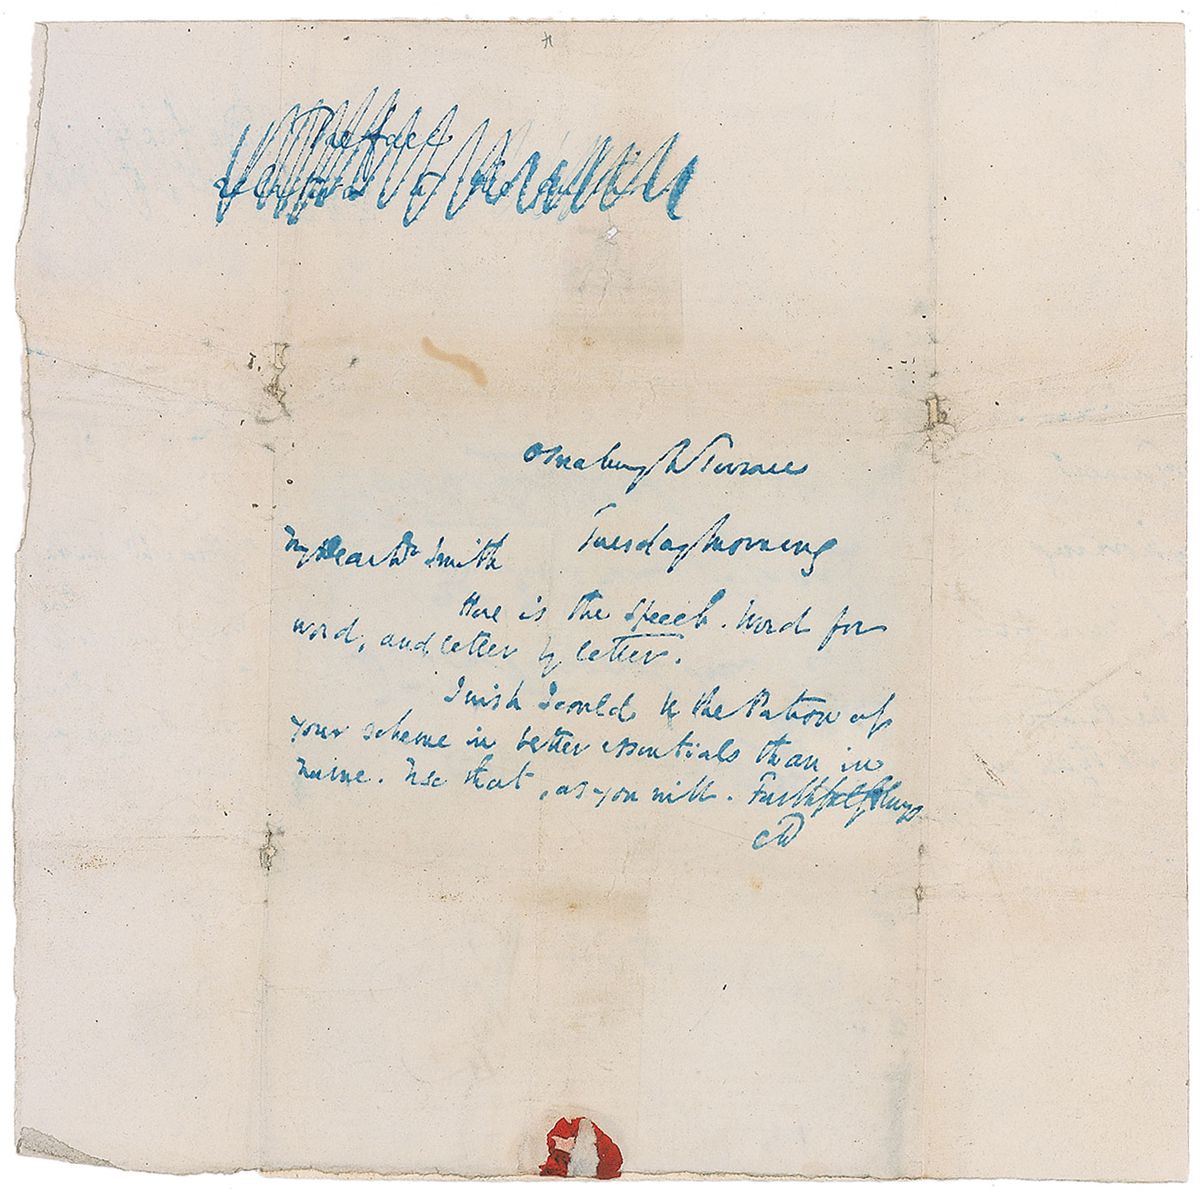 Preface
Osnaburgh Terrace
Tuesday Morning
My Dear Dr Smith
Here is the speech. Word for
word, and letter by letter.
I wish I could be the Patron of
your scheme in better essentials than in
name. Use that, as you will. Faithfully always
CD